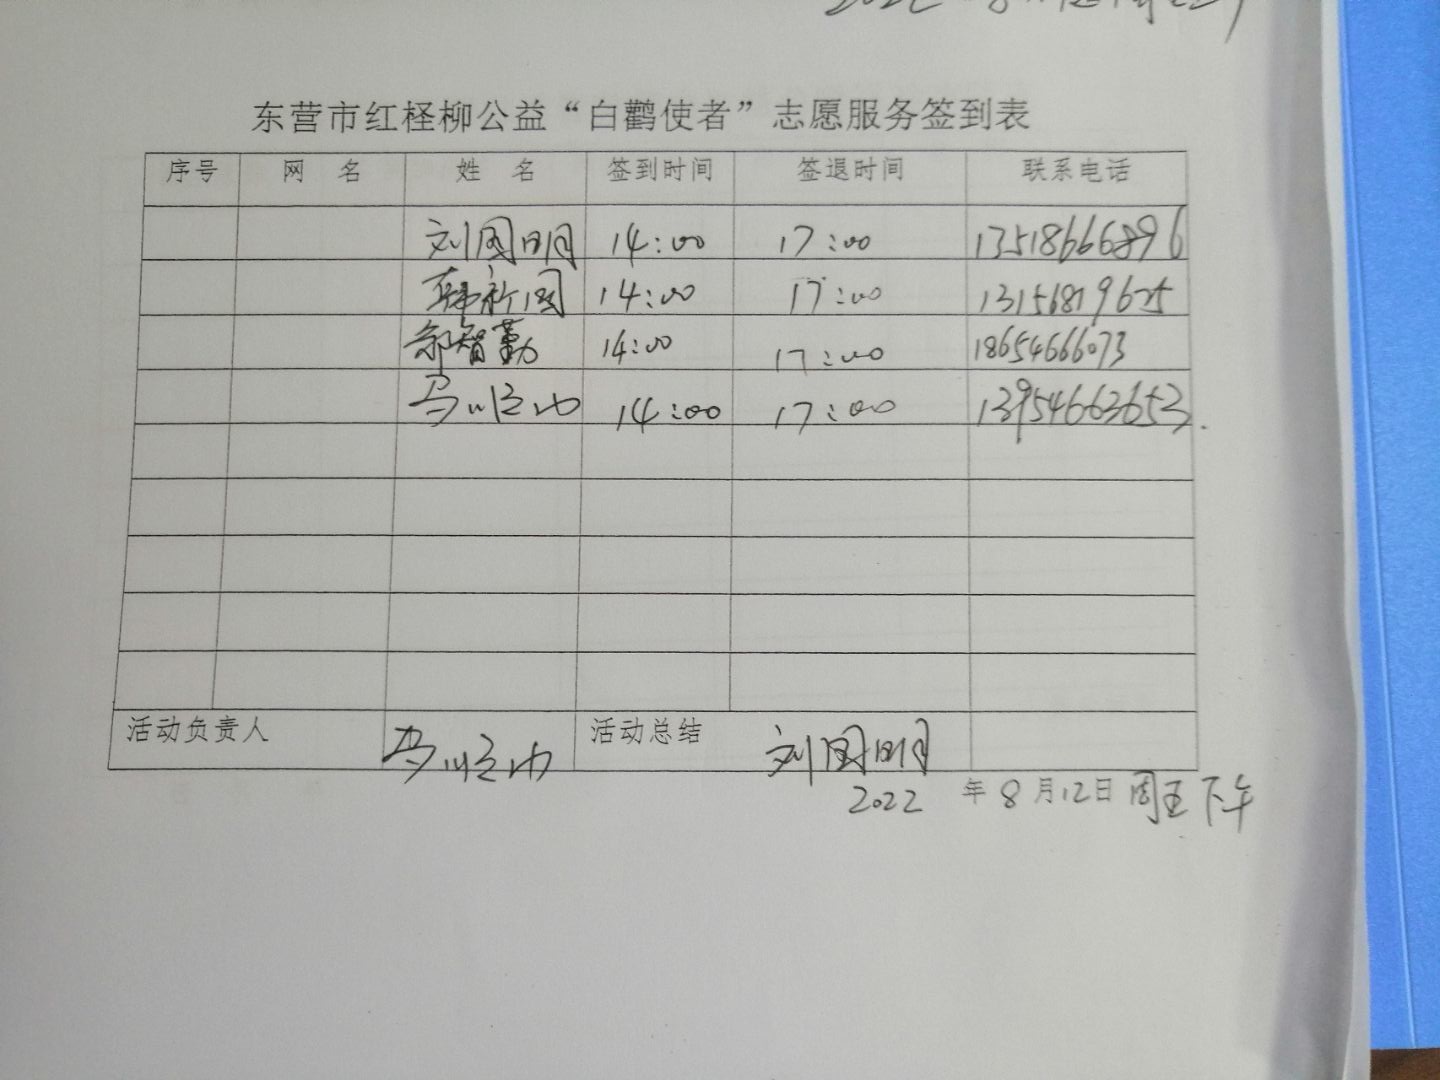 东营市红柽柳公益“白鹳使者”志愿服务签到表
序号 网 名 姓 名 签到时间 签退时间 联系电话
刘国明 14:00 17:00 13518666896
韩新国 14:00 17:00 13156819625
郭智勤 14:00 17:00 18654666073
马 14:00 17:00 13954663653
活动负责人 马 活动总结 刘国明
2022 年 8 月 12 日 周五下午